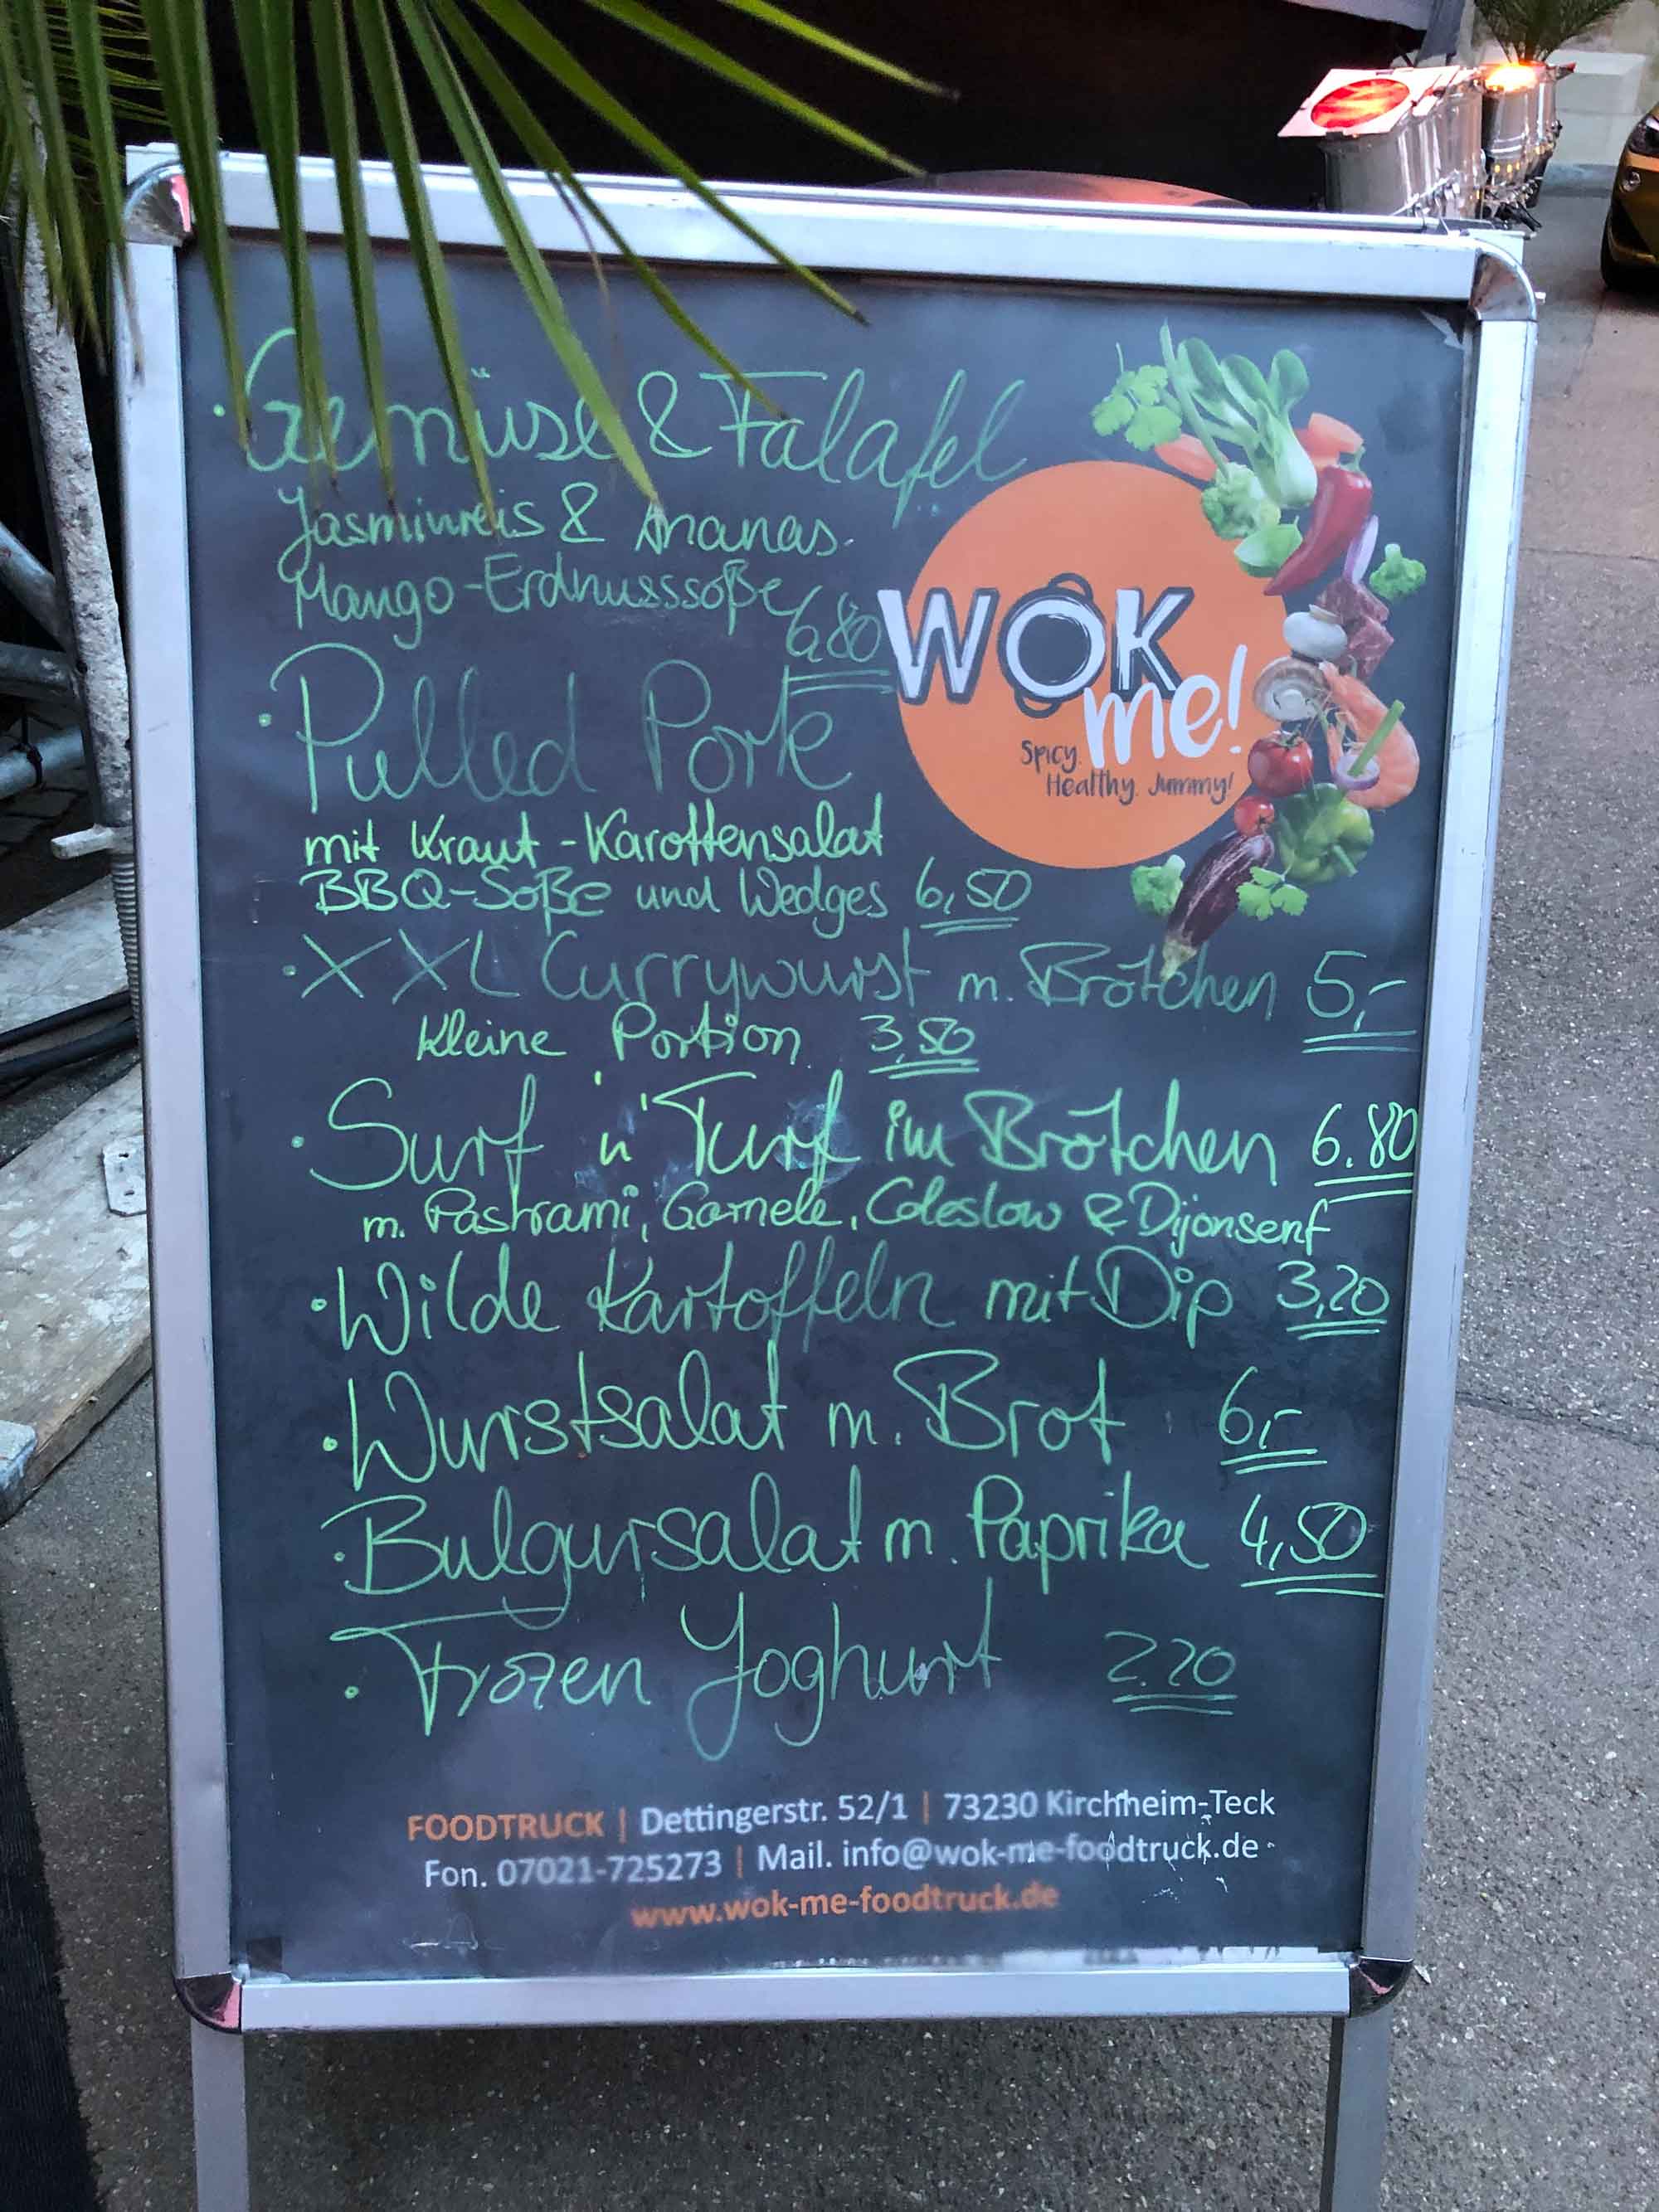 · Gemüse & Falafel
Jasminreis & Ananas
Mango-Erdnusssoße 6,80
· Pulled Pork
mit Kraut-Karottensalat
BBQ-Soße und Wedges 6,50
WOK
me!
Spicy.
Healthy. Jummy!
· XXL Currywurst m. Brötchen 5,-
Kleine Portion 3,50
· Surf 'n' Turf im Brötchen 6.80
m. Pastrami, Garnele, Coleslow & Dijonsenf
· Wilde Kartoffeln mit Dip 3,20
· Wurstsalat m. Brot 6,-
· Bulgursalat m. Paprika 4,50
· Frozen Yoghurt 2.20
FOODTRUCK | Dettingerstr. 52/1 | 73230 Kirchheim-Teck
Fon. 07021-725273 | Mail. info@wok-me-foodtruck.de
www.wok-me-foodtruck.de